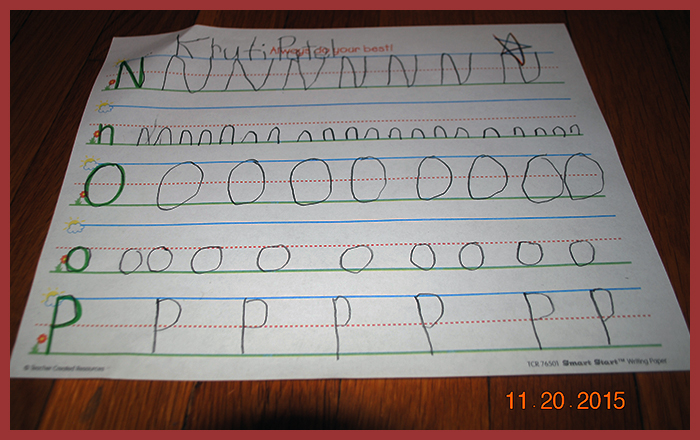 Kruti Patel
Always do your best!
N N N N N N N N
n n n n n n n n n n n n n n n n n n n n n
O O O O O O O O O
o o o o o o o o o o
P P P P P P P
© Teacher Created Resources TCR 76501 Smart Start™ Writing Paper
11.20.2015